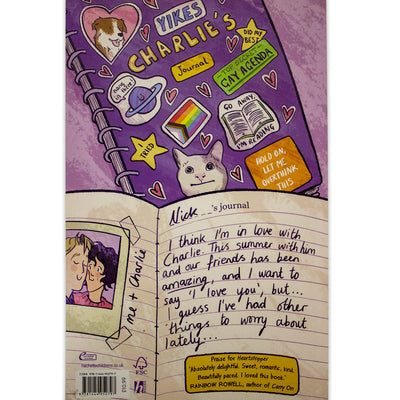 YIKES
CHARLIE'S
Journal
DID MY
BEST
TOP SECRET
GAY AGENDA
GO AWAY,
I'M READING
I TRIED
HOLD ON,
LET ME
OVERTHINK
THIS
Nick __'s journal
I think I'm in love with
Charlie. This summer with him
and our friends has been
amazing, and I want to
say 'I love you', but...
I guess I've had other
things to worry about
lately...
me + Charlie
Praise for Heartstopper
'Absolutely delightful. Sweet, romantic, kind.
Beautifully paced. I loved this book.'
RAINBOW ROWELL, author of Carry On
FSC